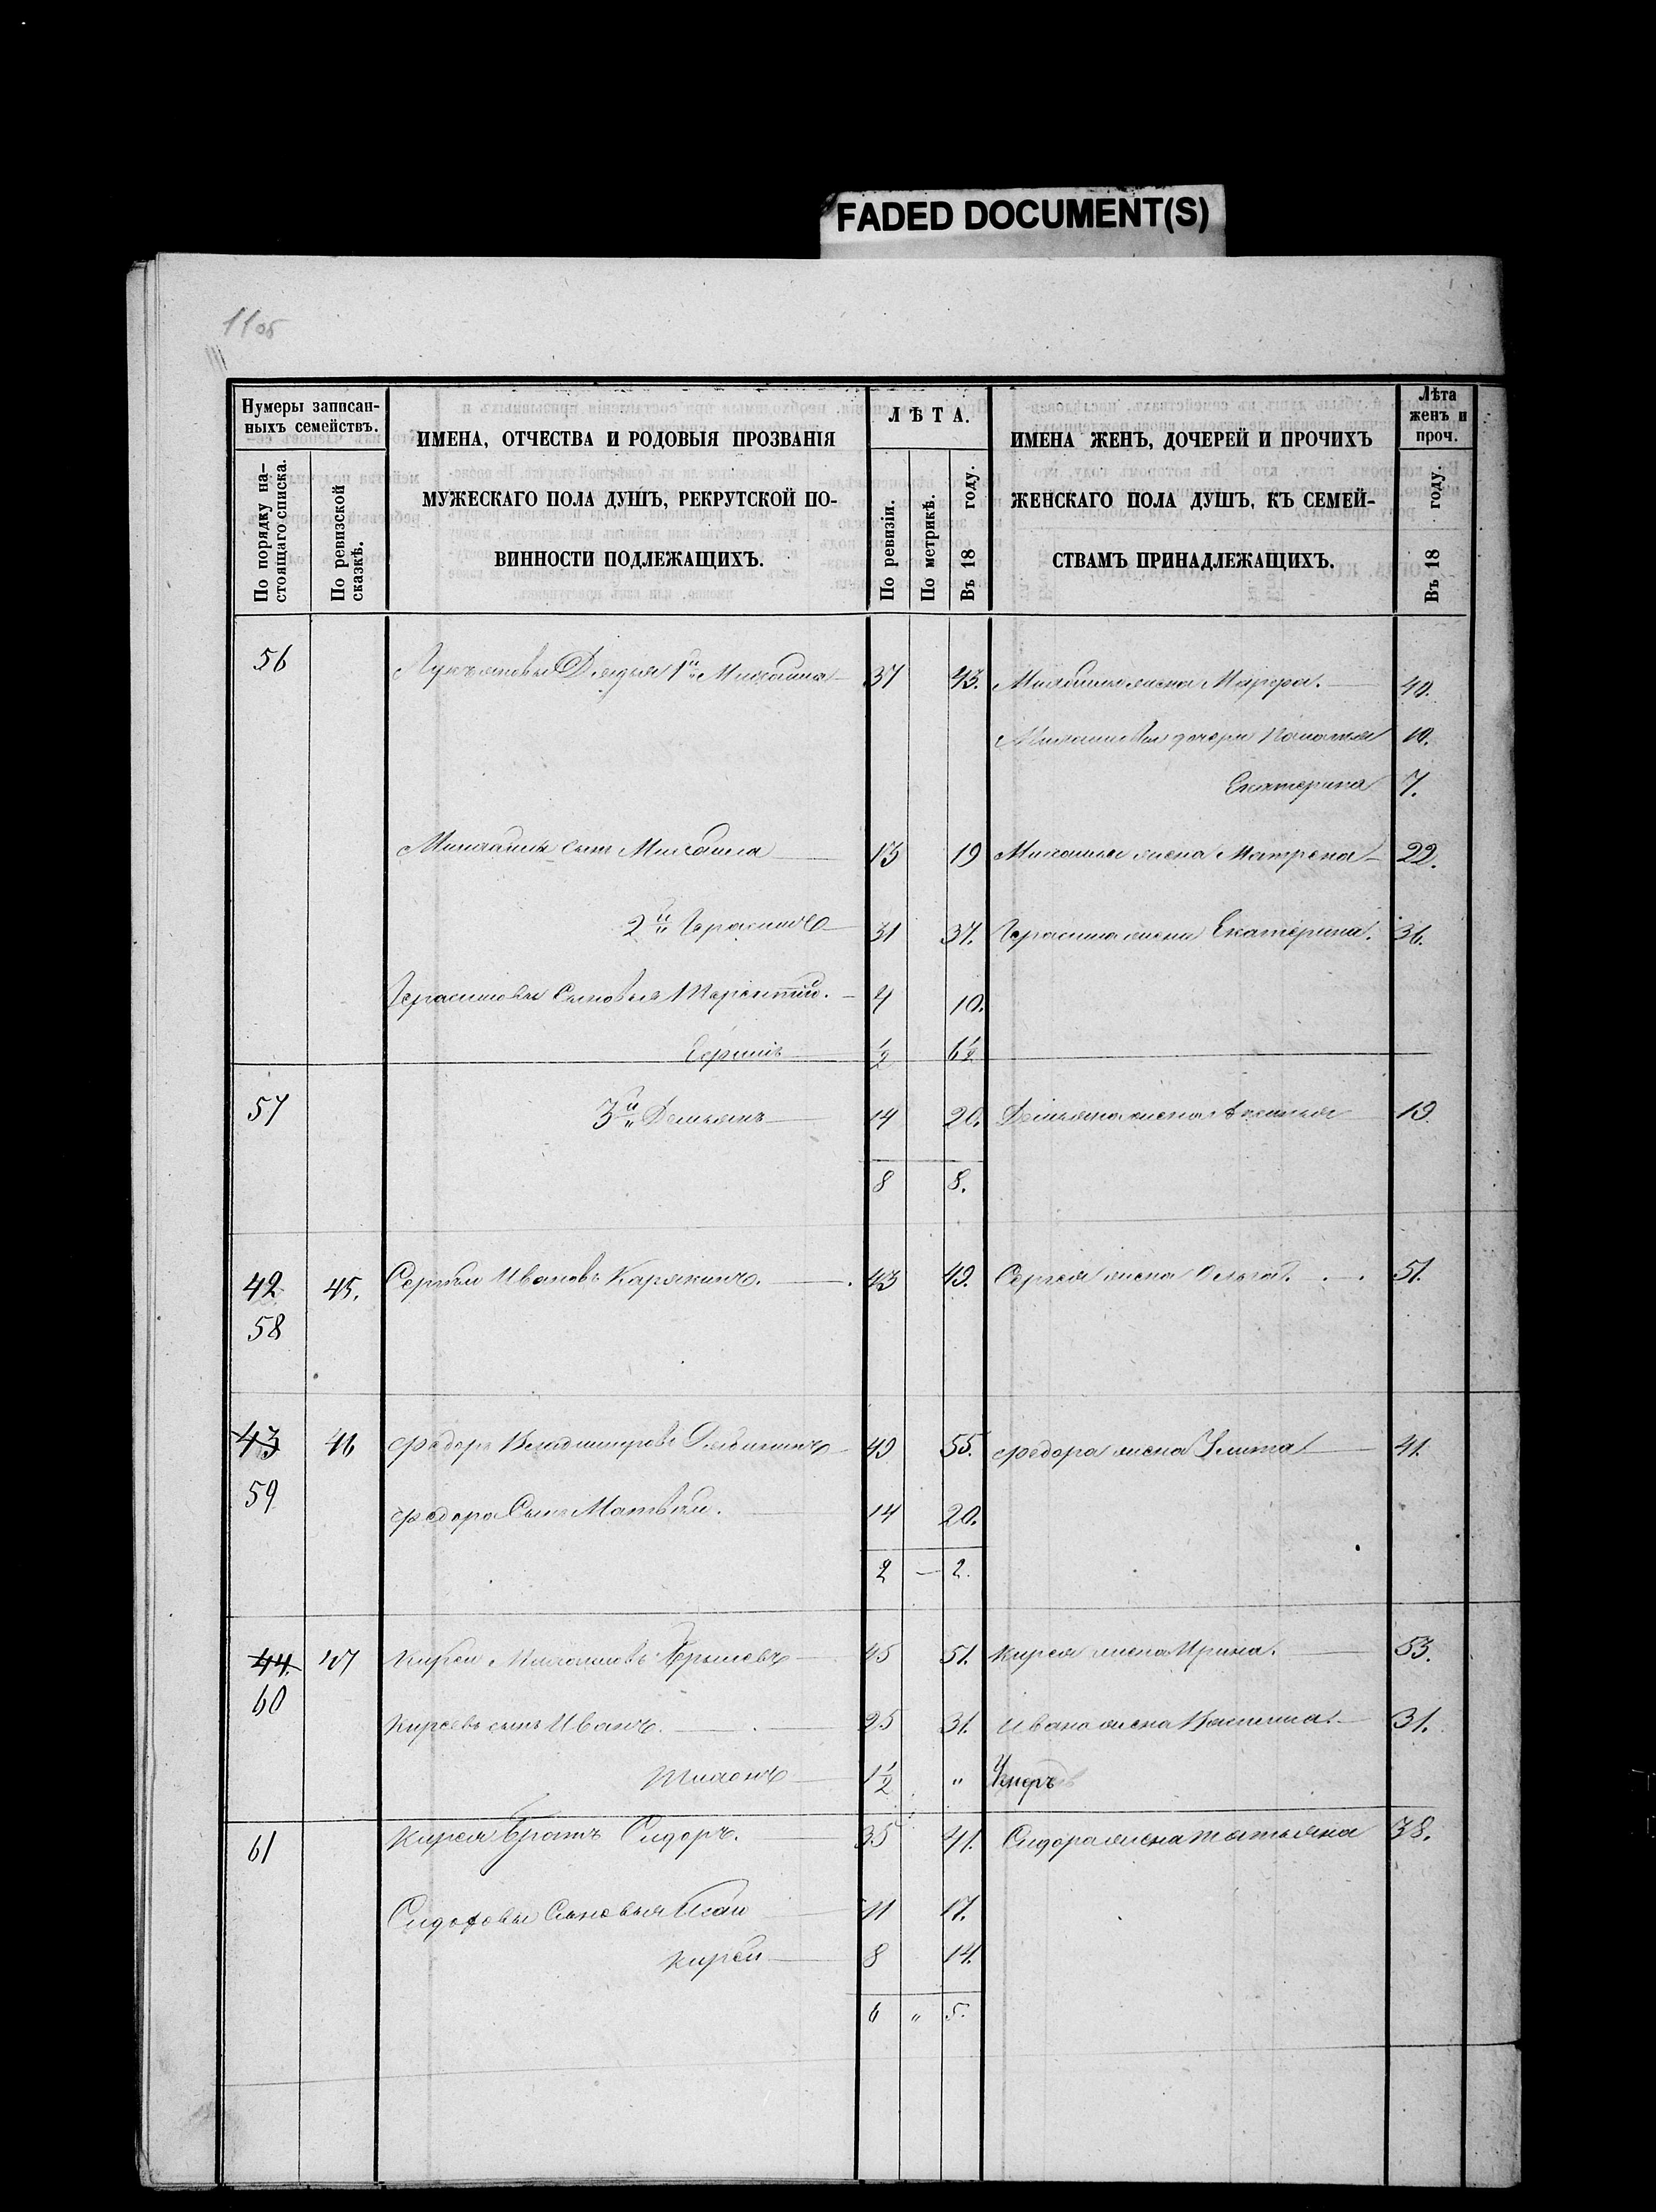 FADED DOCUMENT(S)
11об
Нумеры записан-
ныхъ семействъ.
По порядку на-
стоящаго списка.
По ревизской
сказкѣ.
ИМЕНА, ОТЧЕСТВА И РОДОВЫЯ ПРОЗВАНІЯ
МУЖЕСКАГО ПОЛА ДУШЪ, РЕКРУТСКОЙ ПО-
ВИННОСТИ ПОДЛЕЖАЩИХЪ.
ЛѢТА.
По ревизіи.
По метрикѣ.
Въ 18 году.
ИМЕНА ЖЕНЪ, ДОЧЕРЕЙ И ПРОЧИХЪ
ЖЕНСКАГО ПОЛА ДУШЪ, КЪ СЕМЕЙ-
СТВАМЪ ПРИНАДЛЕЖАЩИХЪ.
Лѣта
женъ и
проч.
Въ 18 году.
56 Лукъяновы Дядья 1й Михаила 37 43. Михайлы жена Марфа. 40.
Михайловы дочери 10.
Екатерина 7.
Михайлы сынъ Михаила 13 19 Михайлы жена Матрена 22.
2й Герасимъ 31 37. Герасима жена Екатерина. 36.
Герасимовы Сыновья Терентій. 4 10.
Сергій ½ 6½
57 3й Демьянъ 14 20. Демьяна жена 19
8 8.
42 45. Сергѣй Ивановъ Карякинъ. 43 49. Сергея жена Ольга. 51.
58
43 46 Федоръ Владимировъ 49 55. Федора жена Улита 41.
59
Федора Сынъ Матвѣй. 14 20.
2 — 2.
44. 47 Кирей Михайловъ 45 51. Кирея жена Ирина. 53.
60
Киреевъ сынъ Иванъ. 25 31. Ивана жена 31.
Тихонъ 1½ " Умеръ
61 Кирея Братъ Сидоръ. 35 41. Сидора жена Татьяна 38.
Сидоровы Сыновья 11 17.
Кирей 8 14.
6 " 5.